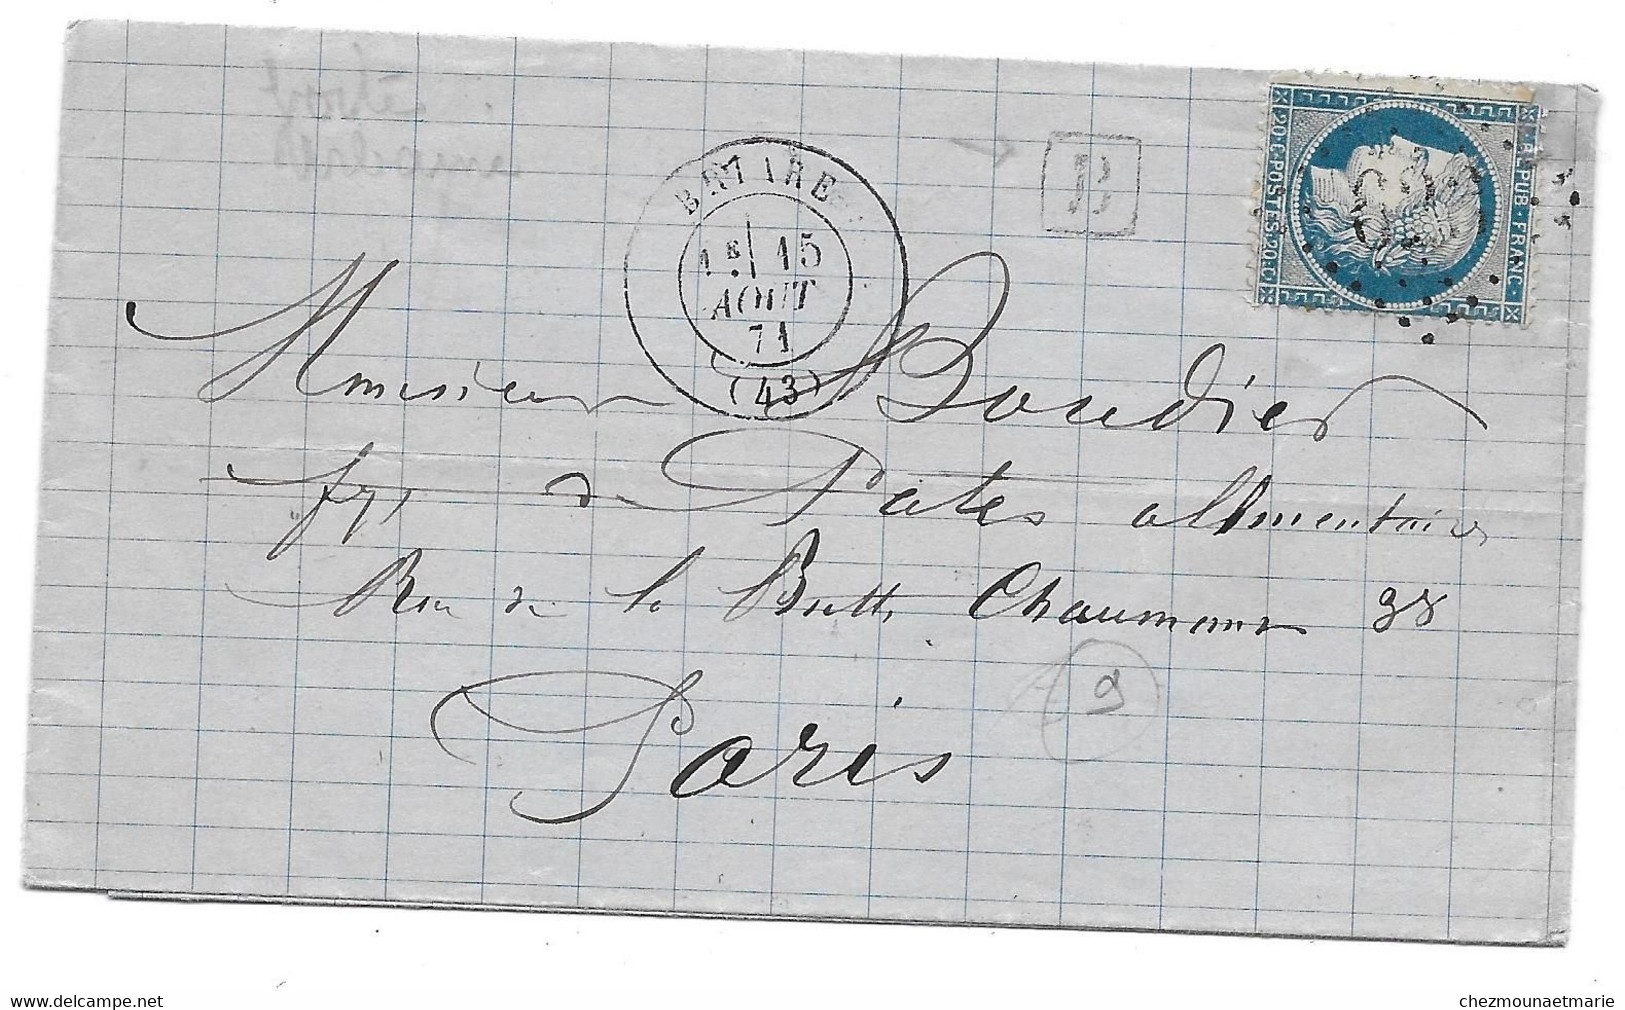 BETTRE
1E 15
AOUT
71
(43)
B
REPUB · FRANC ·
20·C·POSTES·20·C
Monsieur Boudier
de Pates alimentaires
Rue de la Butte Chaumont 38
Paris
9
www.delcampe.net
chezmounaetmarie